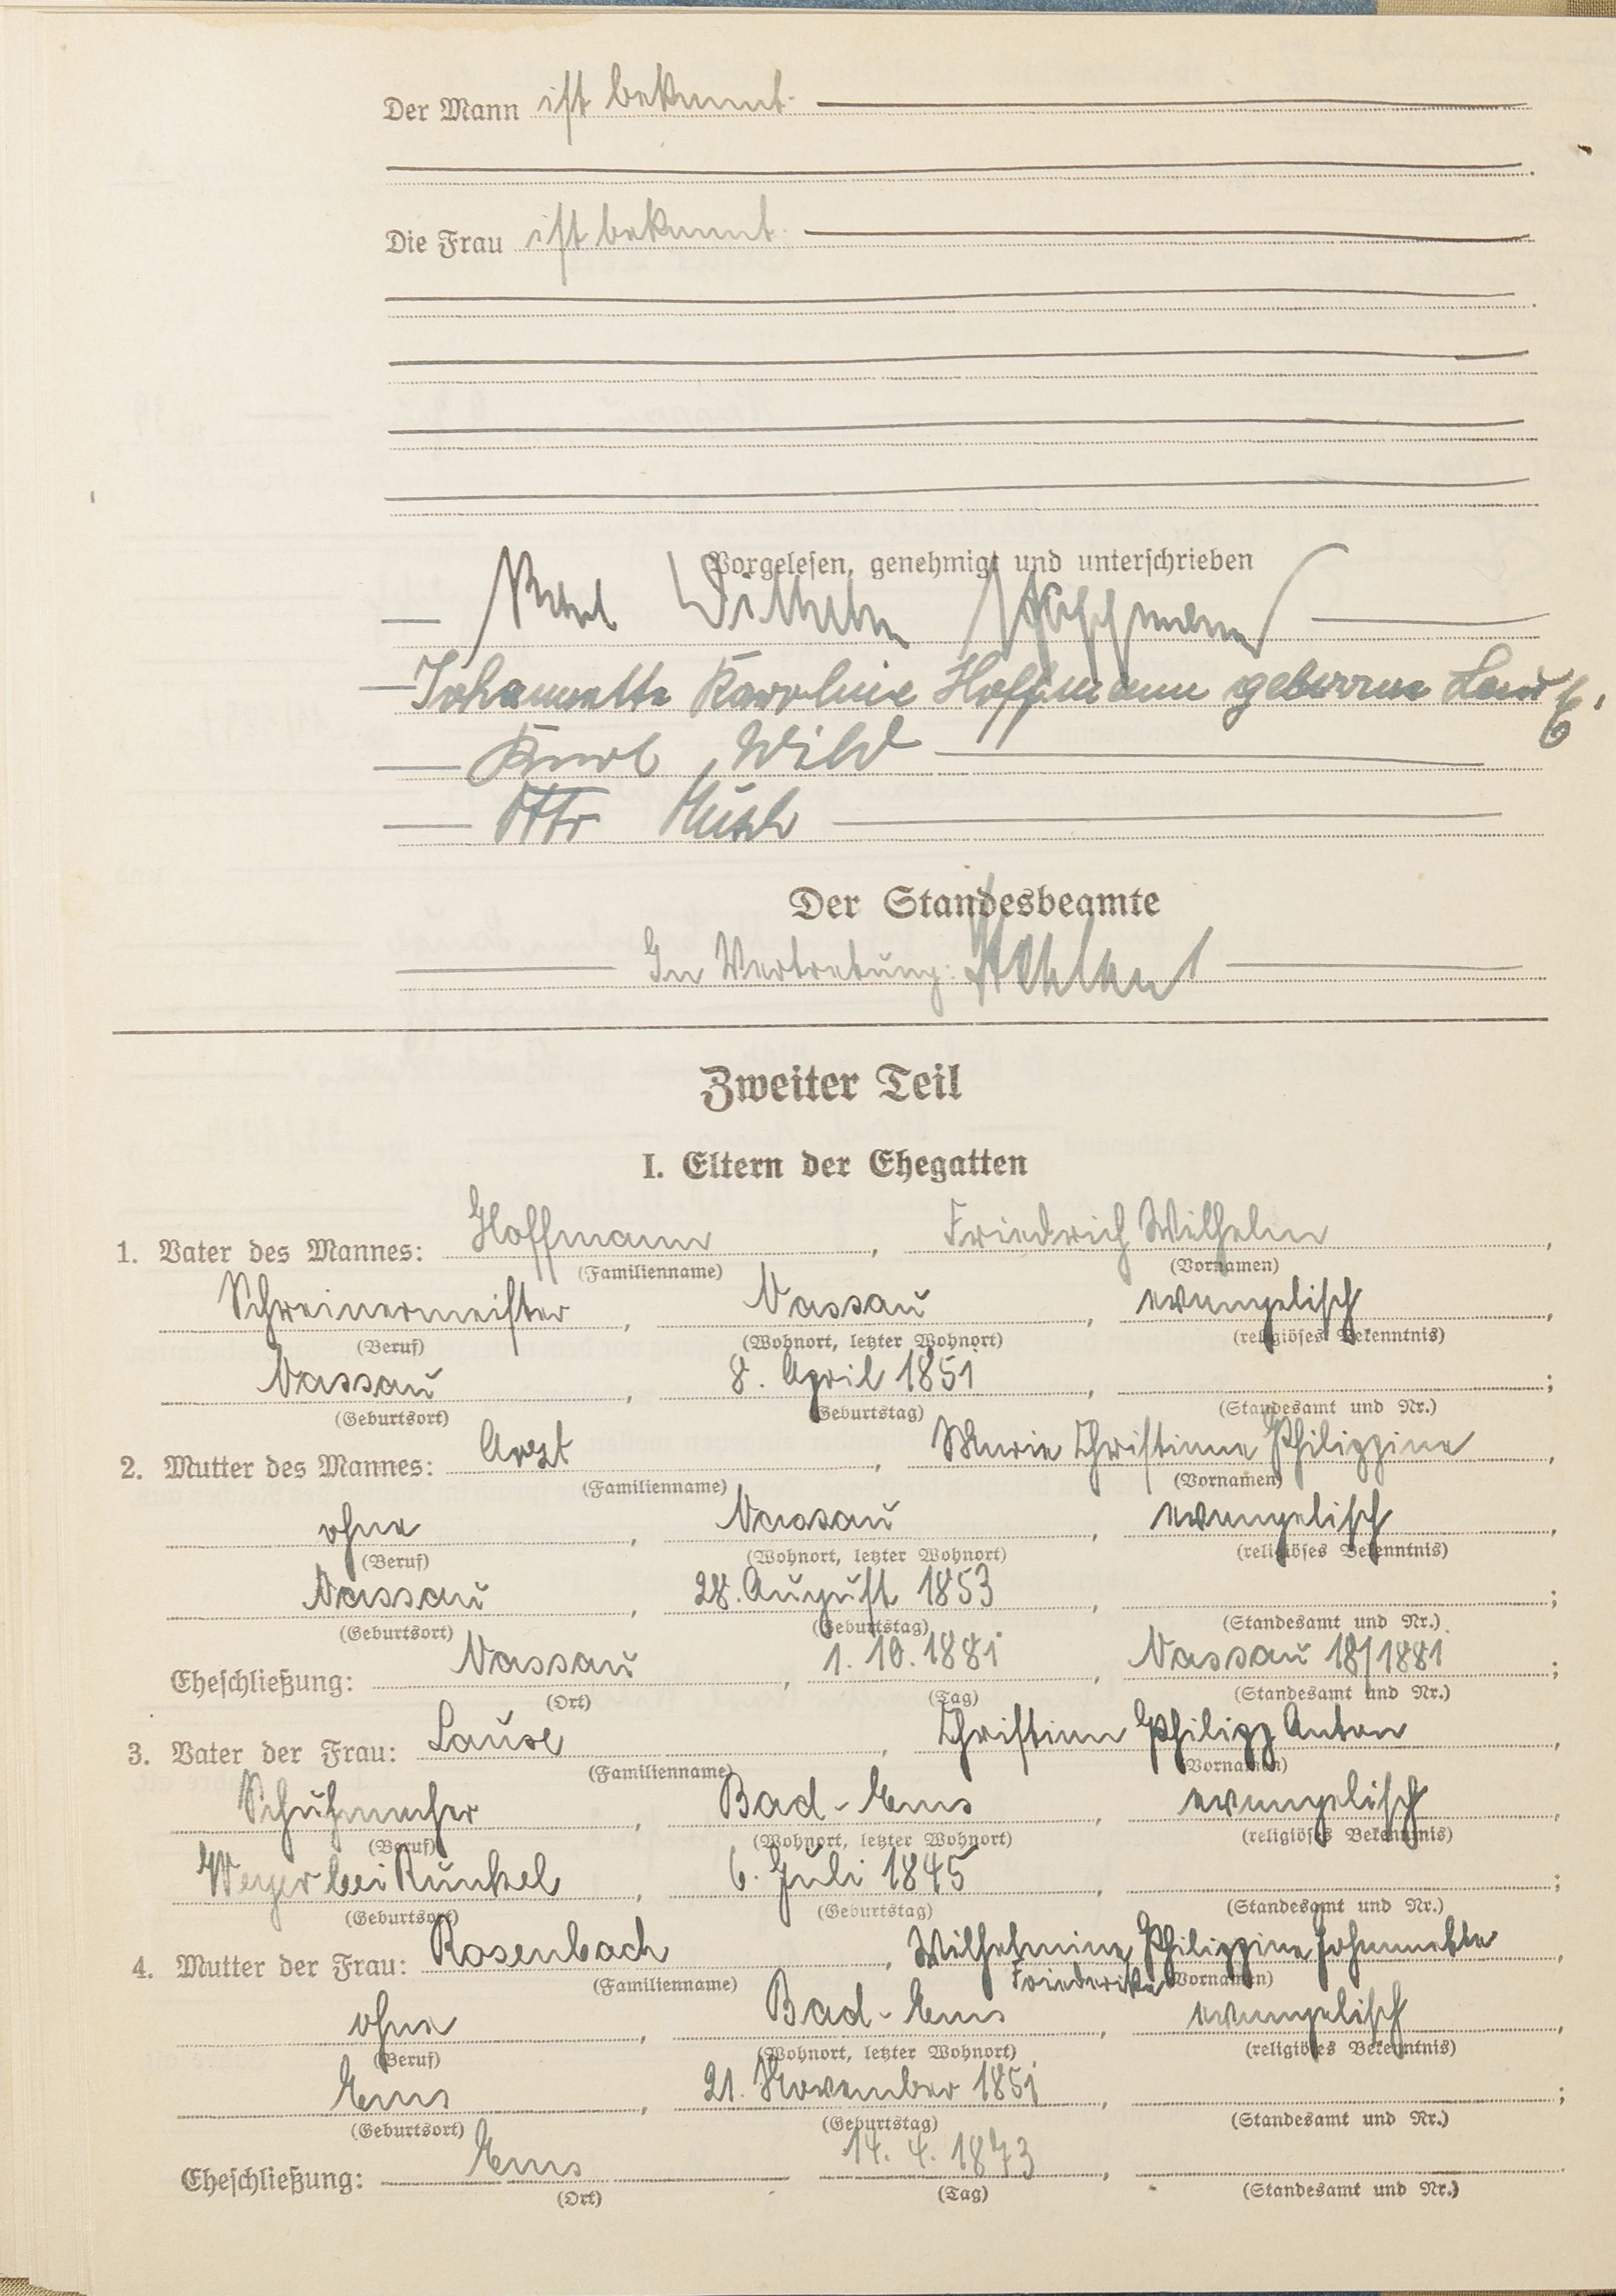 Der Mann ist bekannt.
Die Frau ist bekannt.
Vorgelesen, genehmigt und unterschrieben
Wilhelm Hoffmann
Johannette Karoline Hoffmann geborene
Karl Wild
Otto
Der Standesbeamte
In Vertretung:
Zweiter Teil
I. Eltern der Ehegatten
1. Vater des Mannes: Hoffmann, Friedrich Wilhelm,
(Familienname) (Vornamen)
Schreinermeister, Nassau, evangelisch,
(Beruf) (Wohnort, letzter Wohnort) (religiöses Bekenntnis)
Nassau, 8. April 1851, ;
(Geburtsort) (Geburtstag) (Standesamt und Nr.)
2. Mutter des Mannes: Arzt, Marie Christiane Philippine,
(Familienname) (Vornamen)
ohne, Nassau, evangelisch,
(Beruf) (Wohnort, letzter Wohnort) (religiöses Bekenntnis)
Nassau, 28. August 1853, ;
(Geburtsort) (Geburtstag) (Standesamt und Nr.)
Eheschließung: Nassau, 1. 10. 1881, Nassau 18/1881;
(Ort) (Tag) (Standesamt und Nr.)
3. Vater der Frau: Lause, Christian Philipp Anton,
(Familienname) (Vornamen)
Schuhmacher, Bad-Ems, evangelisch,
(Beruf) (Wohnort, letzter Wohnort) (religiöses Bekenntnis)
Weyer bei Runkel, 6. Juli 1845, ;
(Geburtsort) (Geburtstag) (Standesamt und Nr.)
4. Mutter der Frau: Rosenbach, Wilhelmine Philippine Johannette,
(Familienname) Friederike (Vornamen)
ohne, Bad-Ems, evangelisch,
(Beruf) (Wohnort, letzter Wohnort) (religiöses Bekenntnis)
Ems, 21. November 1851, ;
(Geburtsort) (Geburtstag) (Standesamt und Nr.)
Eheschließung: Ems 14. 4. 1873,
(Ort) (Tag) (Standesamt und Nr.)